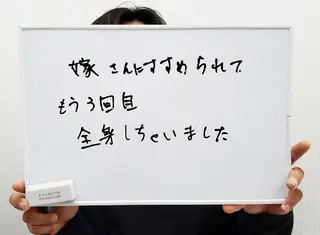 嫁さんにすすめられて
もう3回目
全身しちゃいました